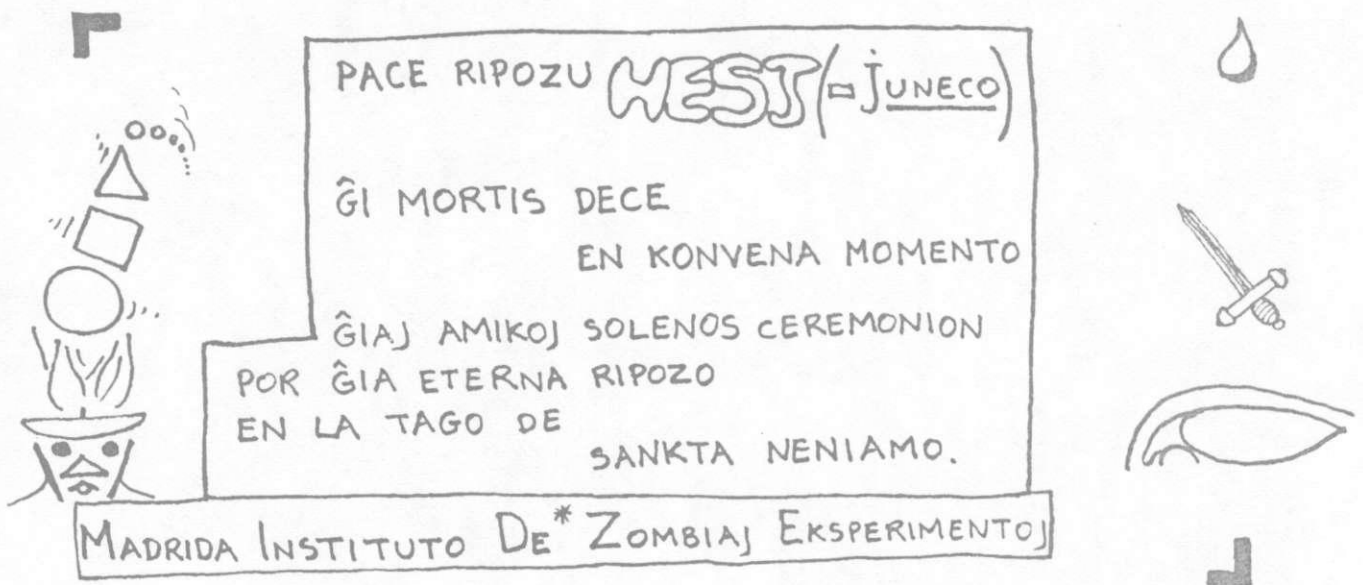 PACE RIPOZU HEST (= JUNECO)
ĜI MORTIS DECE
EN KONVENA MOMENTO
ĜIAJ AMIKOJ SOLENOS CEREMONION
POR ĜIA ETERNA RIPOZO
EN LA TAGO DE
SANKTA NENIAMO.
MADRIDA INSTITUTO DE* ZOMBIAJ EKSPERIMENTOJ